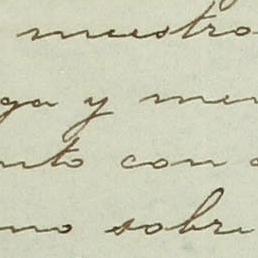 muestro
ga y me
nto con
no sobre